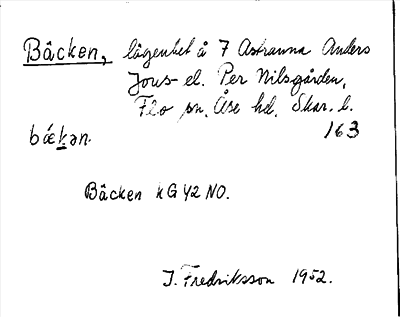 Bäcken, lägenhet å 7 Astranna Anders
Jons- el. Per Nilsgården,
Flo sn. Åse hd. Skar. l.
bǽkən. 163
Bäcken kG Y2 NO.
I. Fredriksson 1952.